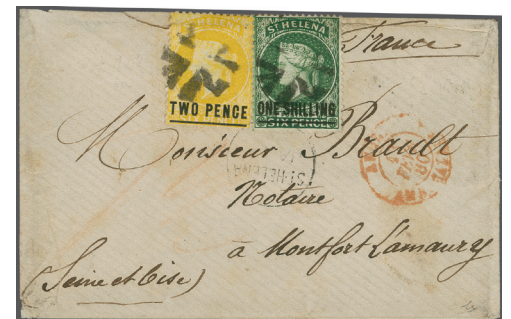 ST HELENA
TWO PENCE
ST HELENA
ONE SHILLING
SIX PENCE
France
Monsieur Brault
ST HELENA
Notaire
à Montfort Lamaury
(Seine et Oise)